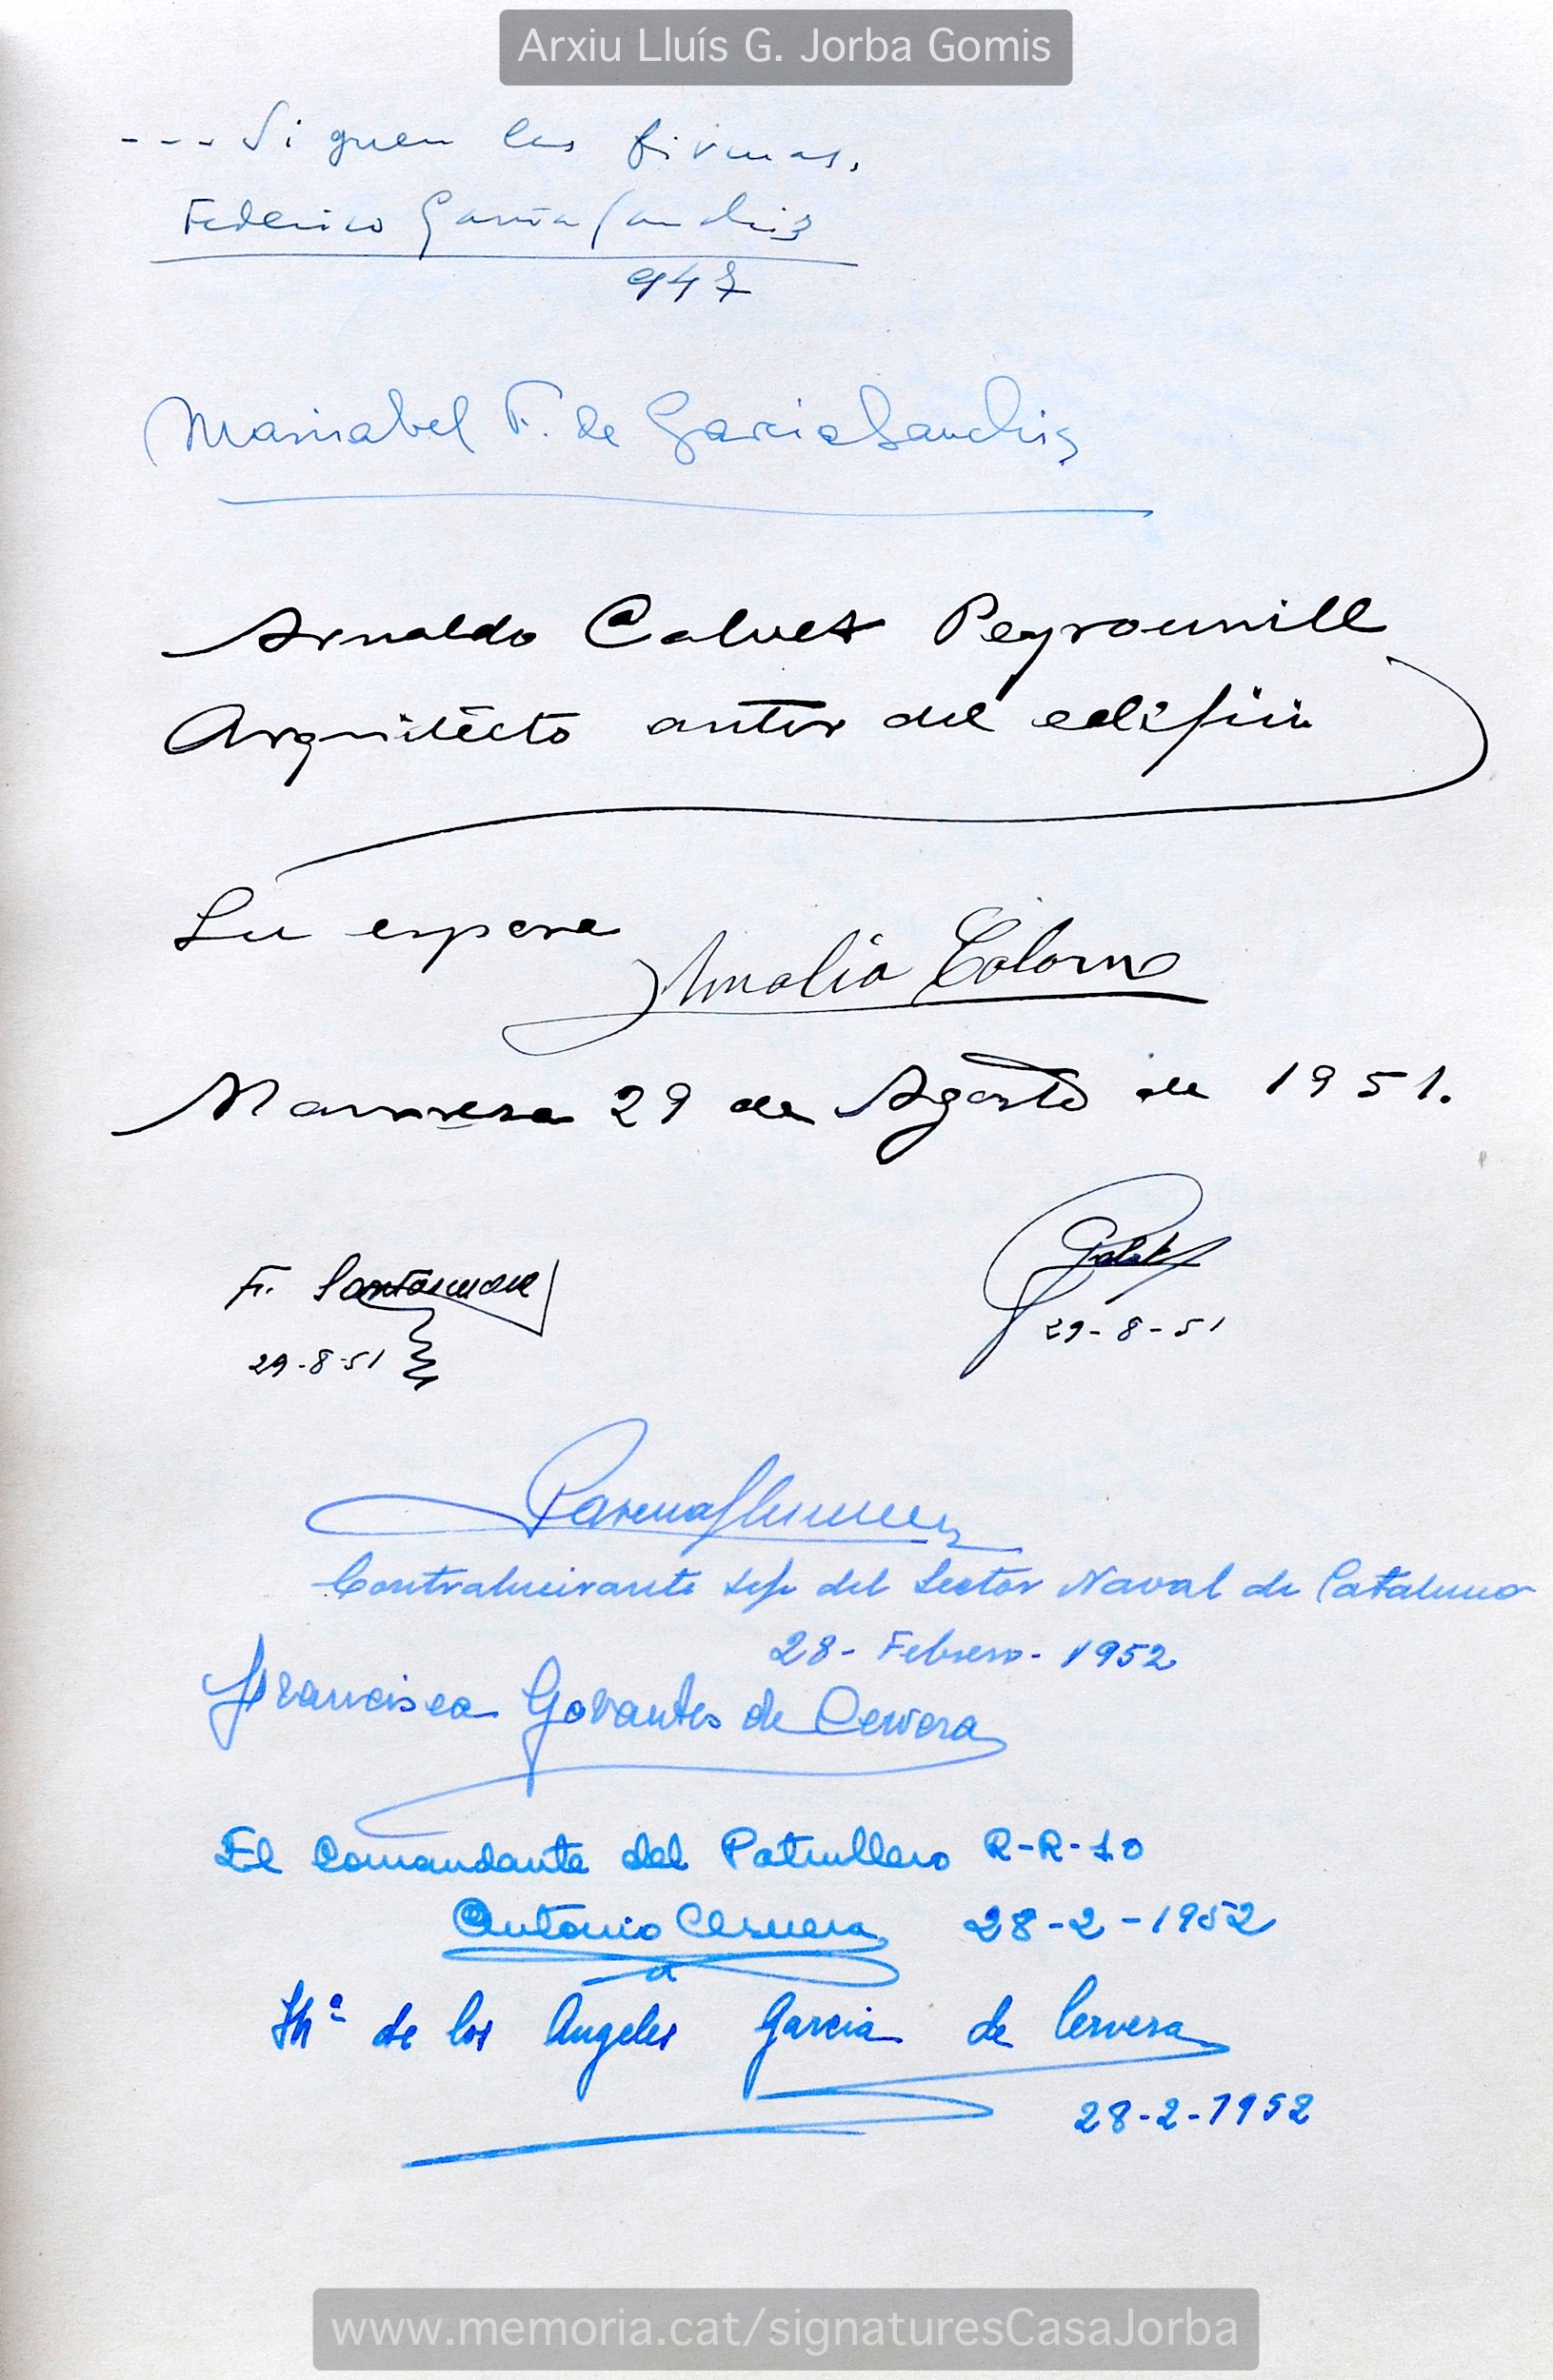 Arxiu Lluís G. Jorba Gomis
--- Siguen las firmas.
Federico García Sanchiz
947
Mariabel F. de García Sanchiz
Arnaldo Calvet Peyronill
Arquitecto autor del edificio
Su esposa
Amalia Colom
Manresa 29 de Agosto de 1951.
F.
29-8-51
29-8-51
Contralmirante Jefe del Sector Naval de Cataluña
28 - Febrero - 1952
Francisca Govantes de Cervera
El Comandante del Patrullero R-R-10
Antonio Cervera 28-2-1952
Mª de los Angeles Garcia de Cervera
28-2-1952
www.memoria.cat/signaturesCasaJorba